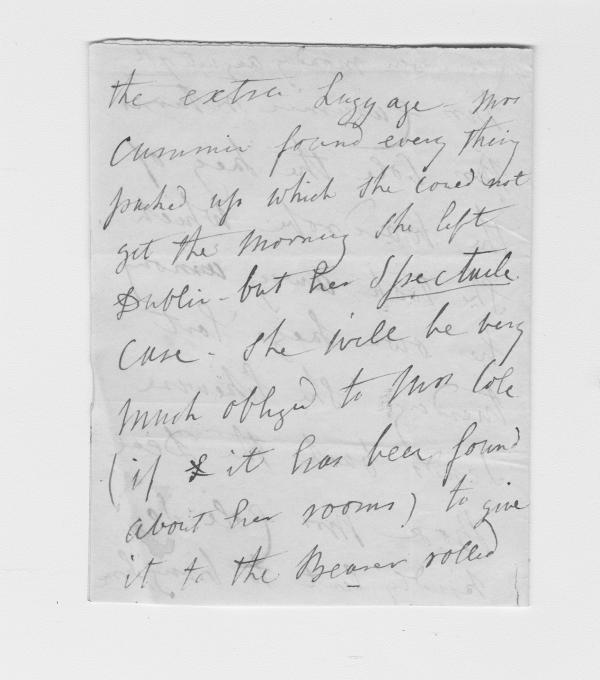 the extra Luggage - Mrs
Cummin found every thing
packed up which she could not
get the Morning she left
Dublin - but her Spectacle
Case - she will be very
much obliged to Mrs Cole
(if it has been found
about her rooms) to give
it to the Bearer rolled